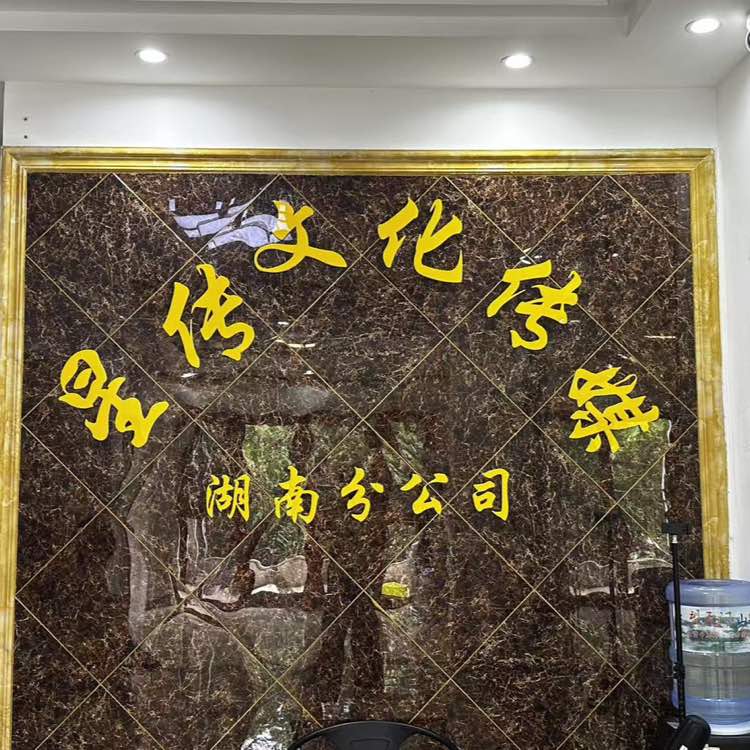 星传文化传媒
湖南分公司